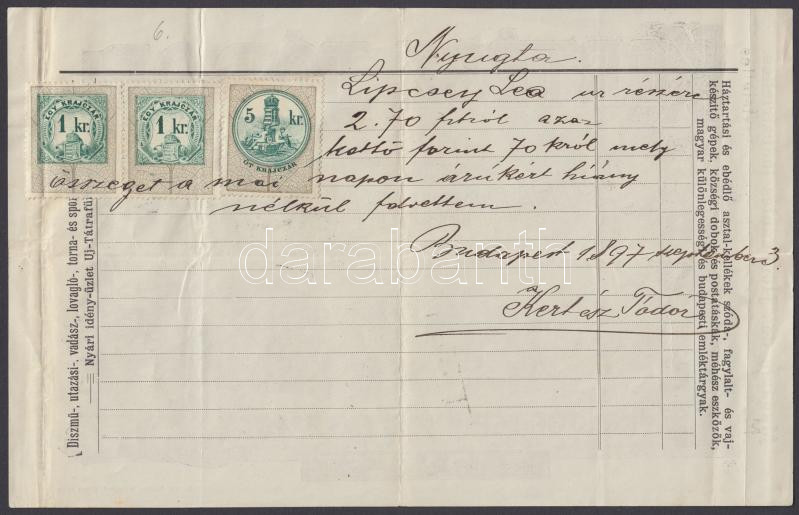 6.
Nyugta.
Lipcsey Lea ur részére
2.70 frtról azaz
kettő forint 70 król mely
összeget a mai napon árúkért hiány
nélkül felvettem.
Budapest 1897 szeptember 3
Kertész Tódor
EGY KRAJCZÁR
1 kr.
EGY KRAJCZÁR
1 kr.
5 kr.
ÖT KRAJCZÁR
darabanth
Háztartási és ebédlő asztal-kellékek szóda-, fagylalt- és vaj-
készitő gépek, községi dobok és postatáskák, méhész eszközök,
magyar különlegességek és budapesti emléktárgyak.
Diszmű-, utazási-, vadász-, lovagló-, torna- és spo
Nyári idény-üzlet Uj-Tátrafü